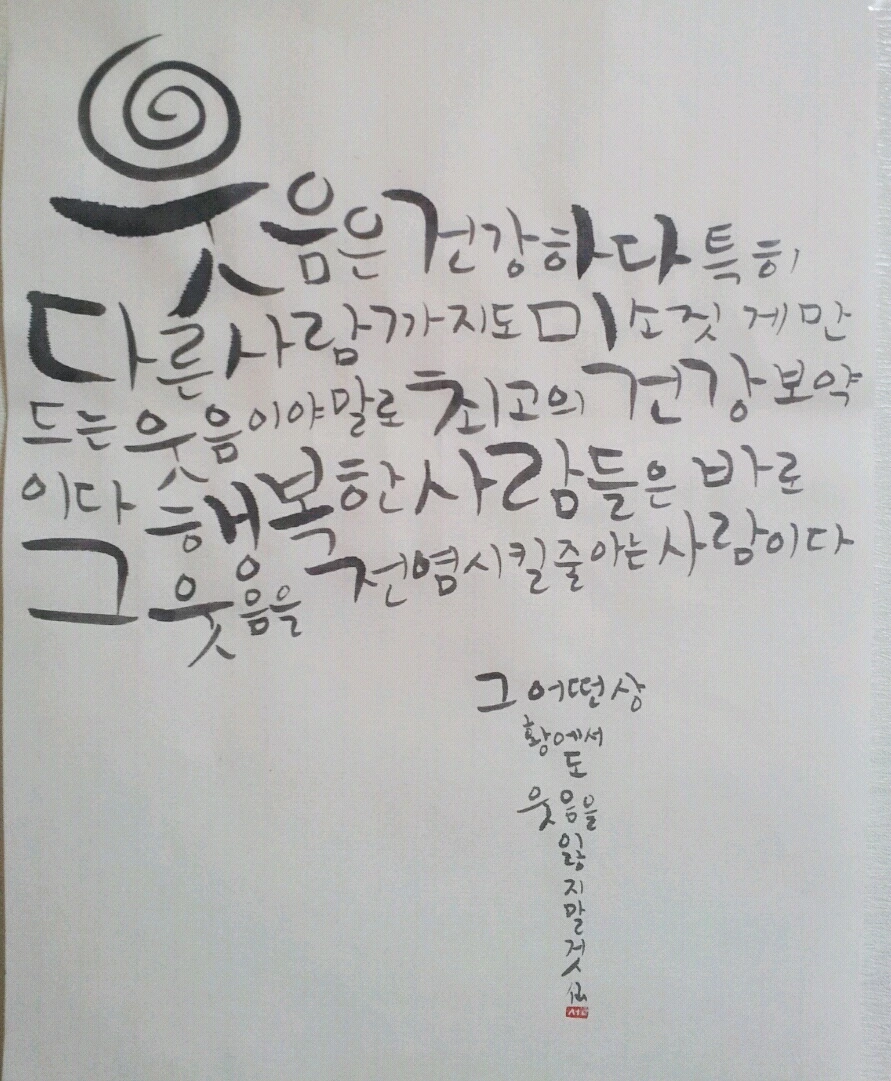 웃음은 건강하다 특히
다른 사람까지도 미소짓게 만
드는 웃음이야말로 최고의 건강보약
이다 행복한 사람들은 바로
그 웃음을 전염시킬줄 아는 사람이다
그 어떤 상
황에서
도
웃음을
잃
지
말
것